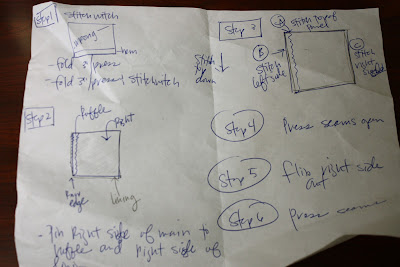 Step 1
- stitch witch
wrong
hem
- fold 3" press
- fold 3" press & stitchwitch
Step 2
Ruffle
Right
Raw
edge
lining
- Pin Right side of main to
ruffle and right side of
Step 3
A Stitch top of
panel
B
Stitch
left side
C
Stitch
right side
Stitch
top
down
Step 4
Press seams open
Step 5
Flip right side
out
Step 6
Press seams